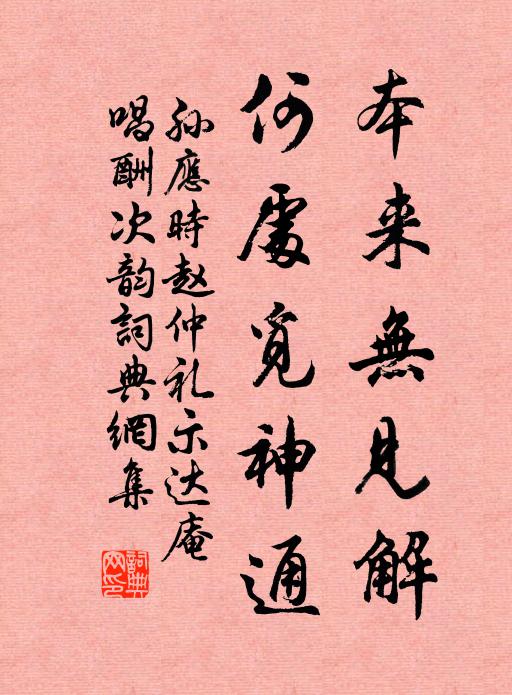 本来無見解
何處覓神通
孫應時赵仲礼示达庵
唱酬次韵詞典網集
詞典網印